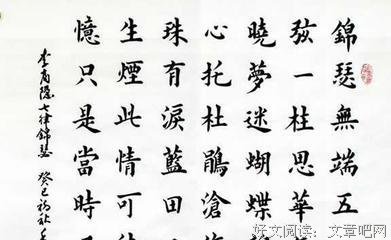 錦瑟無端五
弦一柱思華
曉夢迷蝴蝶
心托杜鵑滄
珠有淚藍田
生煙此情可
憶只是當時
李商隱七律錦瑟 癸巳初秋
好文阅读：文章吧网